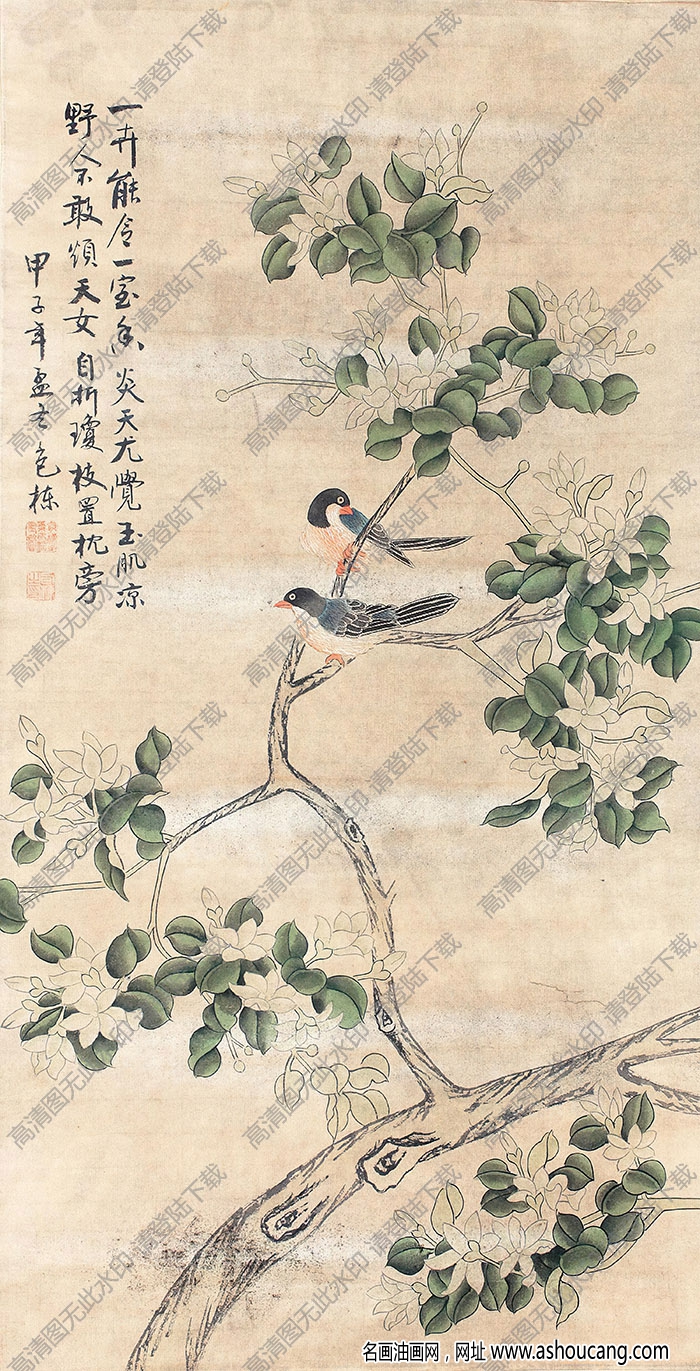 一卉能令一室香炎天尤覺玉肌凉
野人不敢煩天女自折瓊枝置枕旁
甲子年孟冬包棟
高清图无此水印 请登陆下载
名画油画网，网址 www.ashoucang.com